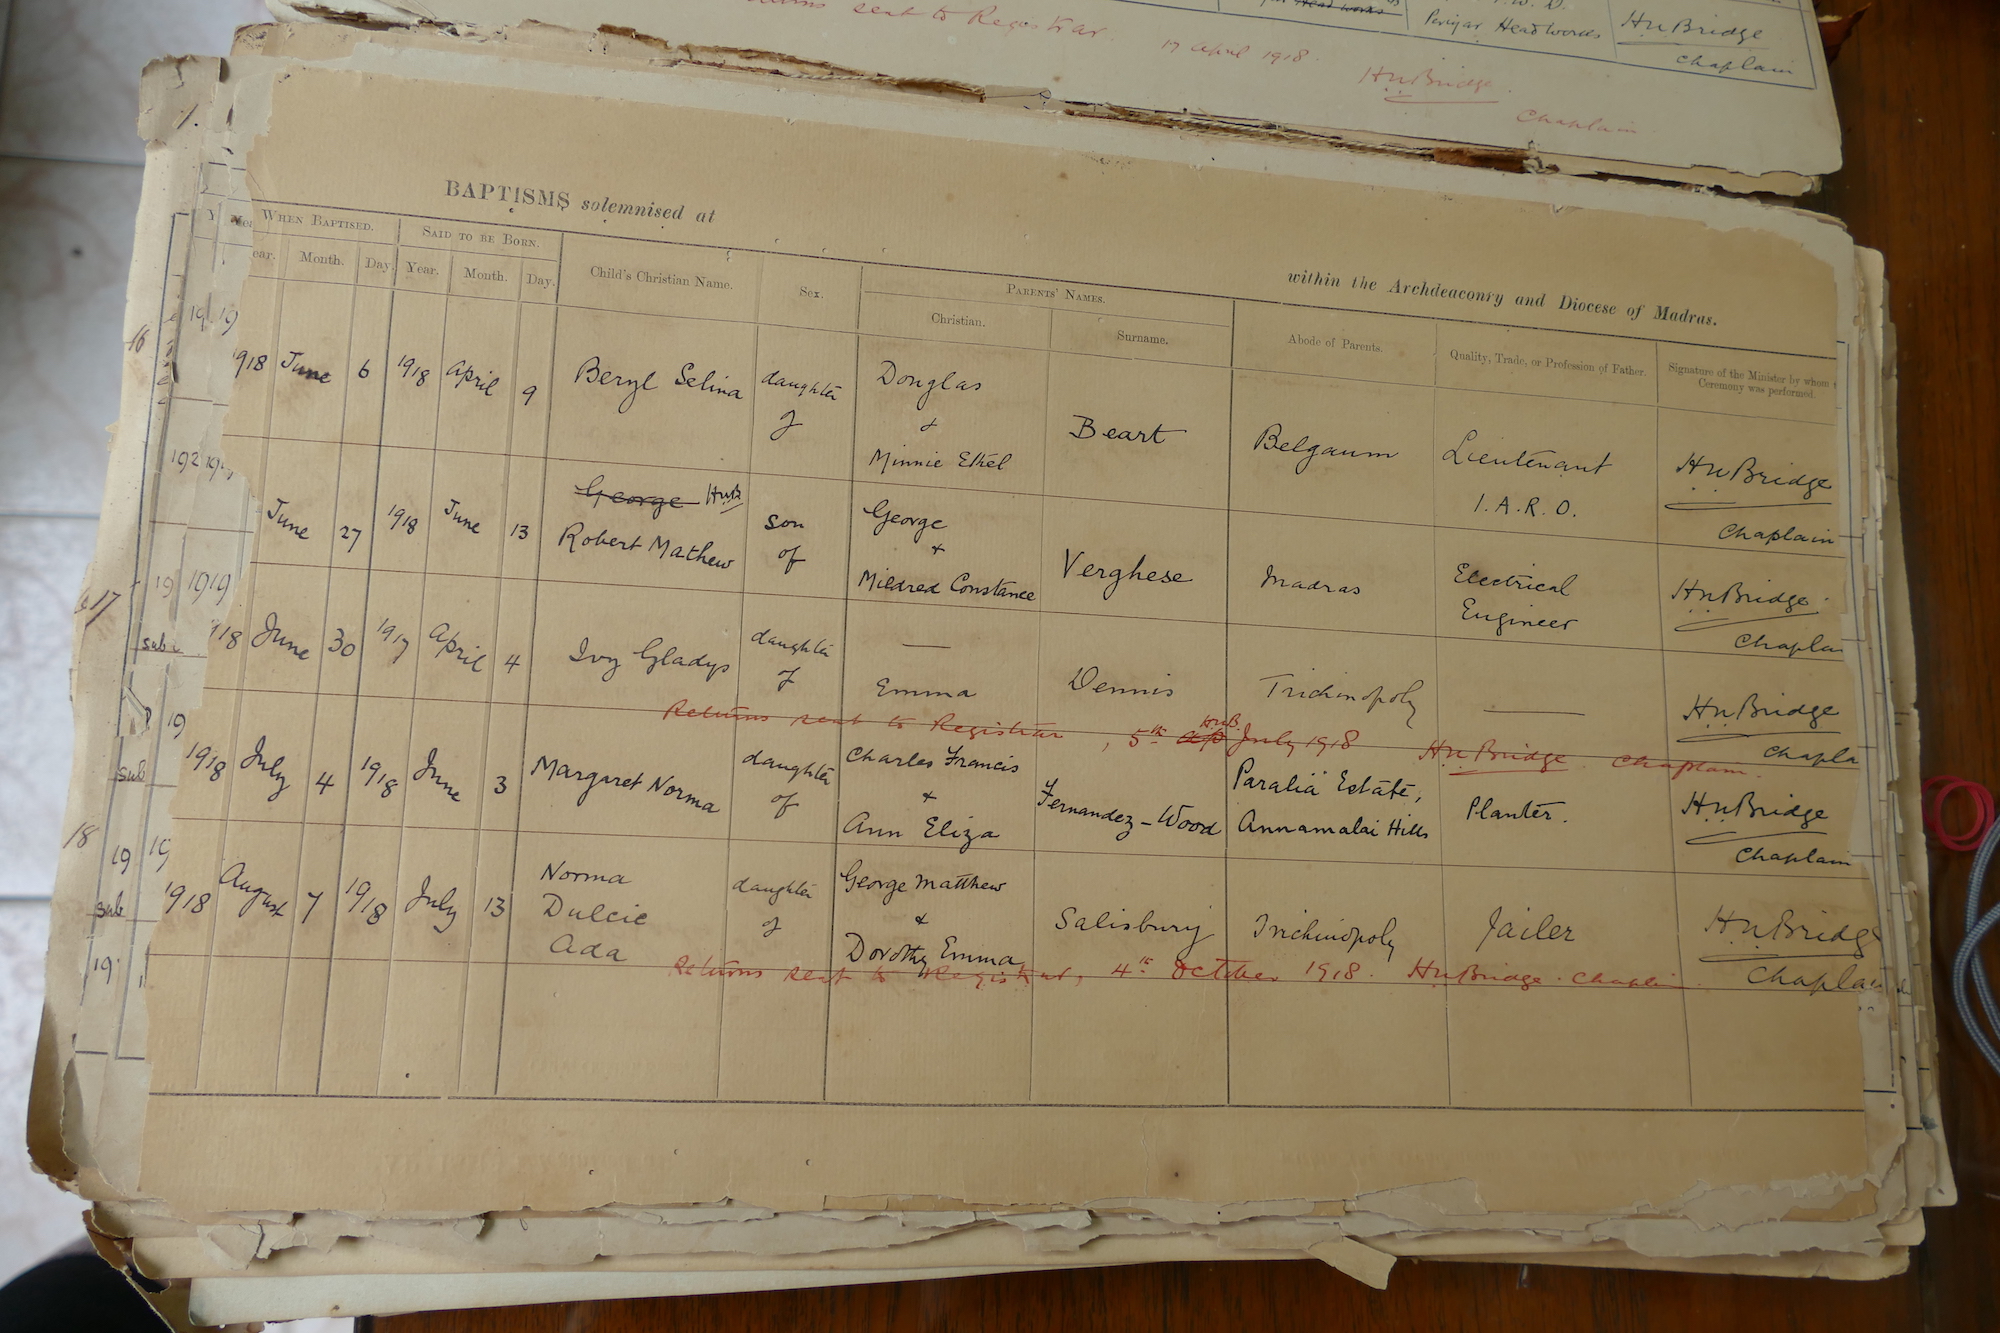 sent to Registrar. 17 April 1918.
H.W. Bridge.
Chaplain
Periyar Headworks
H.W. Bridge
Chaplain
BAPTISMS solemnised at
within the Archdeaconry and Diocese of Madras.
WHEN BAPTISED. SAID TO BE BORN. Child's Christian Name. Sex. PARENTS' NAMES. Abode of Parents. Quality, Trade, or Profession of Father. Signature of the Minister by whom
Ceremony was performed.
ear. Month. Day. Year. Month. Day. Christian. Surname.
1918 June 6 1918 April 9 Beryl Selina daughter of Douglas & Minnie Ethel Beart Belgaum Lieutenant I.A.R.O. H.W. Bridge Chaplain
June 27 1918 June 13 George H.W.B. Robert Mathew son of George & Mildred Constance Verghese Madras Electrical Engineer H.W. Bridge. Chapla
18 June 30 1917 April 4 Ivy Gladys daughter of — Emma Dennis Trichinopoly — H.W. Bridge Chapla
Returns sent to Registrar, 5th Ap H.W.B. July 1918 H.W. Bridge. Chaplain.
1918 July 4 1918 June 3 Margaret Norma daughter of Charles Francis & Ann Eliza Fernandez-Wood Paralia Estate, Annamalai Hills Planter. H.W. Bridge Chaplain
1918 August 7 1918 July 13 Norma Dulcie Ada daughter of George Matthew & Dorothy Emma Salisbury Trichinopoly Jailer H.W. Bridge Chaplain
Returns sent to Registrar, 4th October 1918. H.W. Bridge. Chaplain.